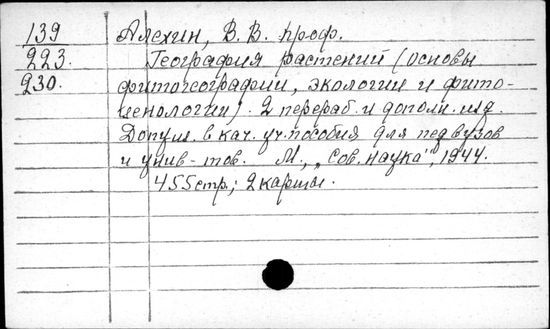 139 Алехин, В.В. проф.
223. География растений (основы
230. фитогеографии, экологии и фито-
ценологии). 2 перераб. и дополн. изд.
Допущ. в кач. уч. пособия для педвузов
и унив-тов. М., „Сов. наука", 1944.
455 стр.; 2 карты.